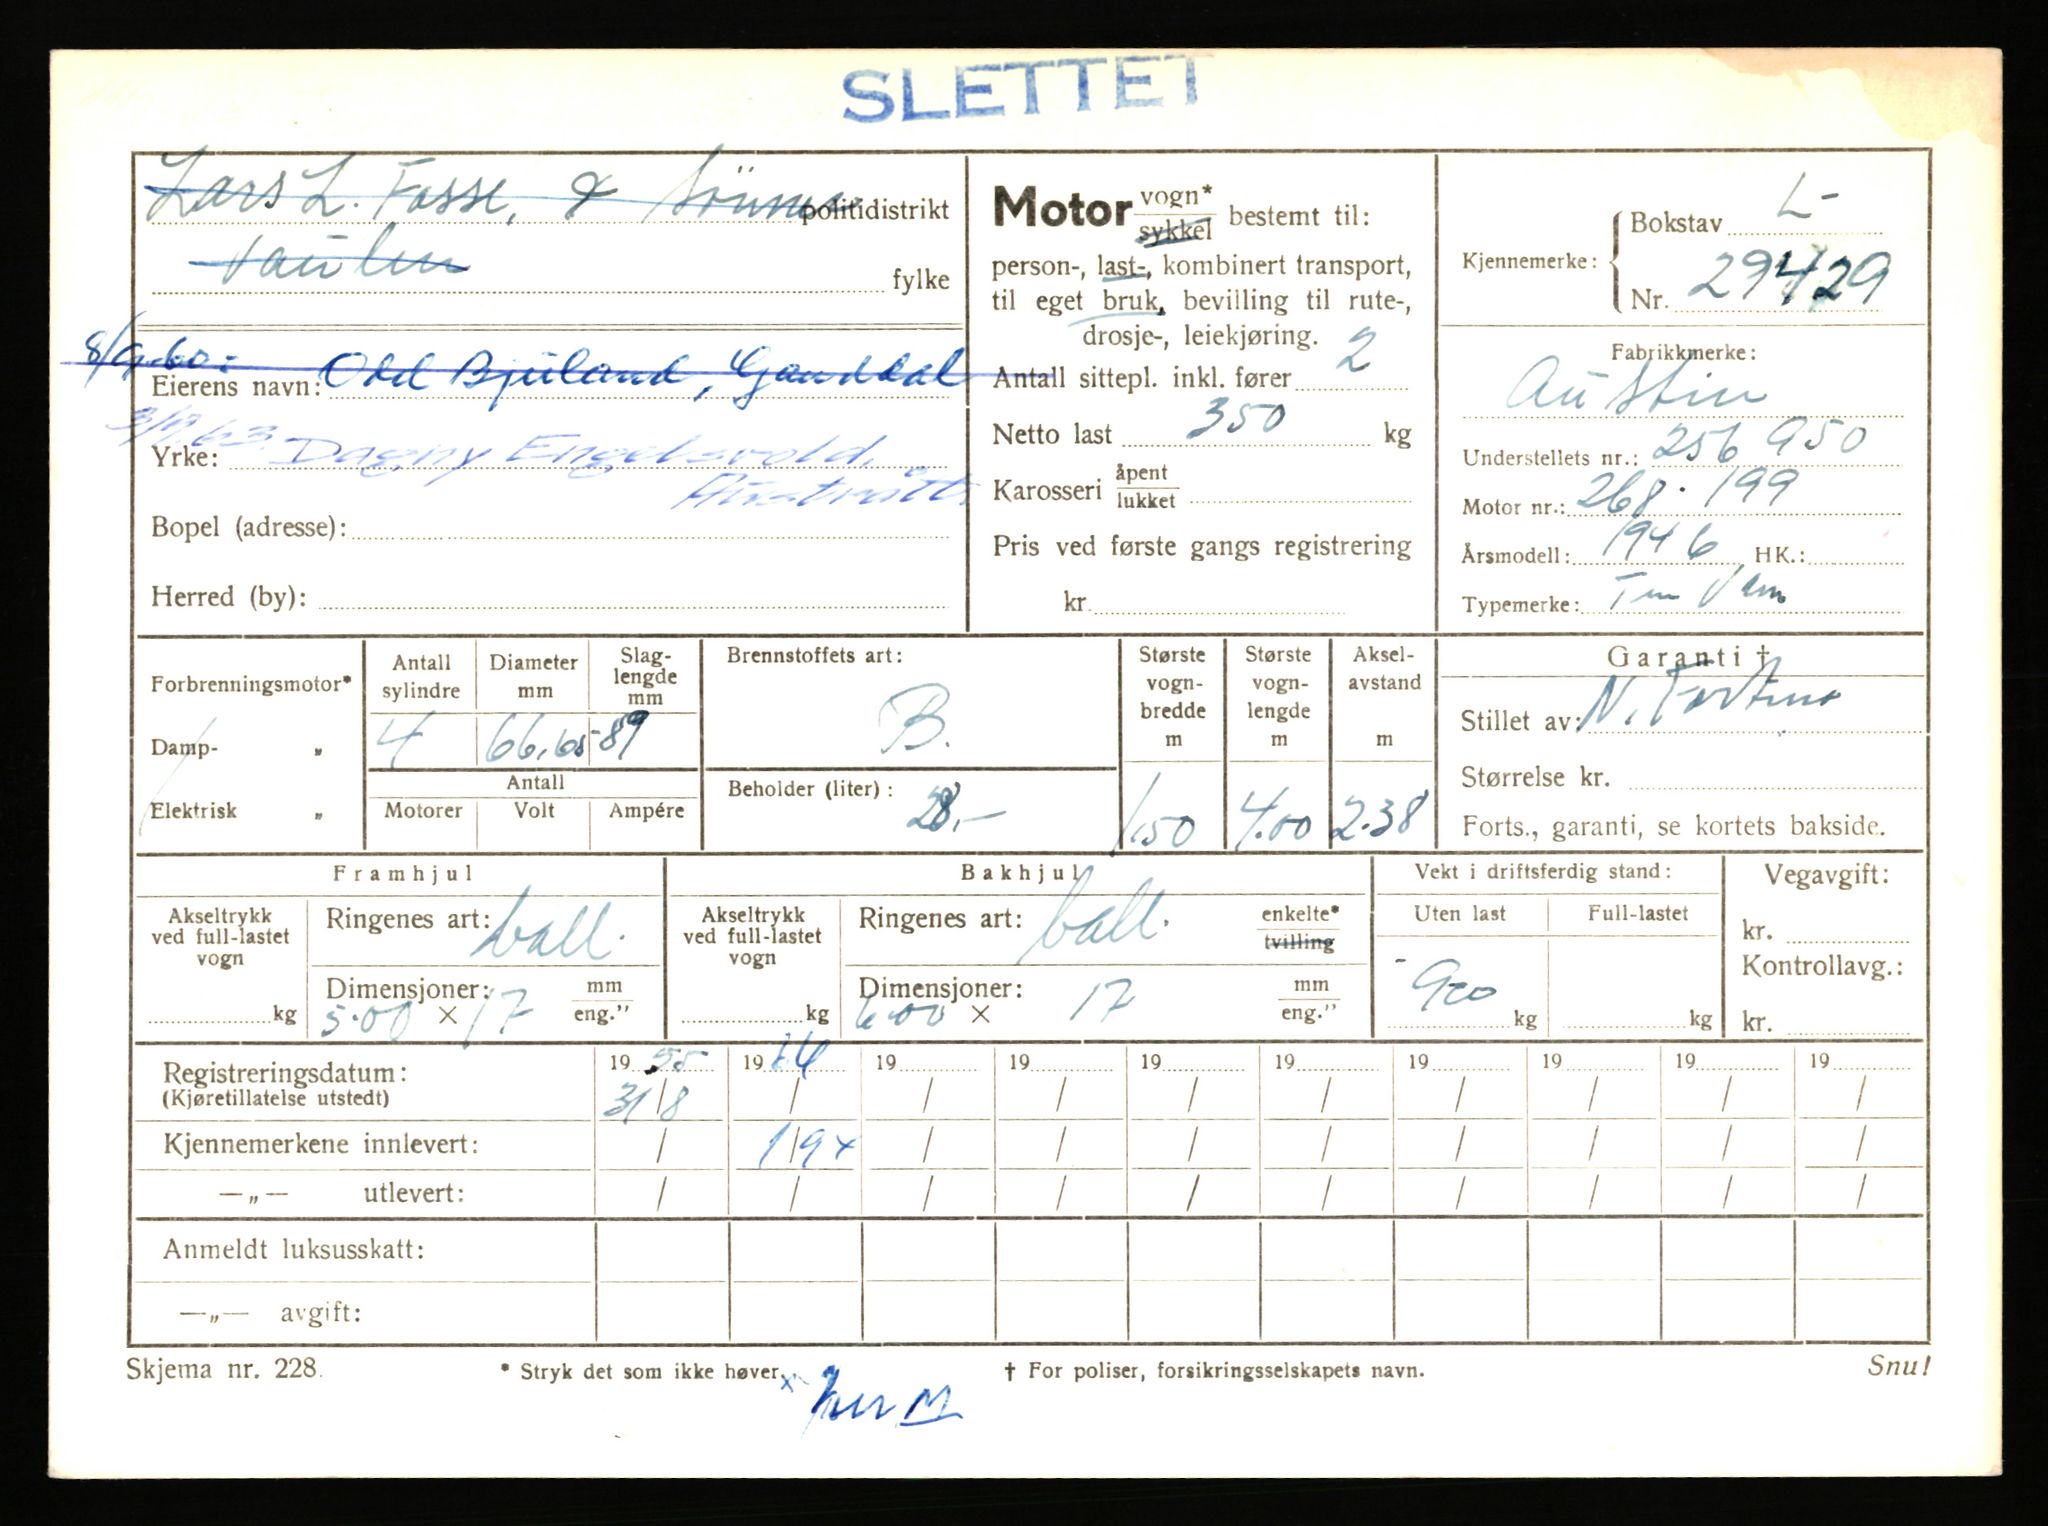 SLETTET
Lars L. Fosse, & Sönner politidistrikt
Vaulen
fylke
8/9.60: Eierens navn: Odd Bjuland, Ganddal
3/9.63 Yrke: Dagny Engelsvold,
Austrått
Bopel (adresse):
Herred (by):
Motor vogn* / sykkel bestemt til:
person-, last-, kombinert transport,
til eget bruk, bevilling til rute-,
drosje-, leiekjøring.
Antall sittepl. inkl. fører 2
Netto last 350 kg
Karosseri åpent / lukket
Pris ved første gangs registrering
kr.
Kjennemerke: Bokstav L-
Nr. 29429
Fabrikkmerke:
Austin
Understellets nr.: 256950
Motor nr.: 268.199
Årsmodell: 1946 HK.:
Typemerke: Ten Van
Forbrenningsmotor*
Damp- „
Elektrisk „
Antall sylindre 4
Diameter mm 66,65
Slag-lengde mm 89
Antall
Motorer Volt Ampére
Brennstoffets art:
B.
Beholder (liter): 28,-
Største vogn-bredde m 1.50
Største vogn-lengde m 4.00
Aksel-avstand m 2.38
Garanti †
Stillet av: N.
Størrelse kr.
Forts., garanti, se kortets bakside.
Framhjul
Akseltrykk ved full-lastet vogn
kg
Ringenes art: ball.
Dimensjoner: mm / eng."
5.00 × 17
Bakhjul
Akseltrykk ved full-lastet vogn
kg
Ringenes art: ball. enkelte* / tvilling
Dimensjoner: mm / eng."
6.00 × 17
Vekt i driftsferdig stand:
Uten last Full-lastet
900 kg kg
Vegavgift:
kr.
Kontrollavg.:
kr.
Registreringsdatum: 19 55 19 64 19 19 19 19 19 19 19 19
(Kjøretillatelse utstedt) 31/8 / / / / / / / / /
Kjennemerkene innlevert: / 1/9 x / / / / / / / /
—„— utlevert: / / / / / / / / / /
Anmeldt luksusskatt:
—„— avgift:
Skjema nr. 228. * Stryk det som ikke høver. † For poliser, forsikringsselskapets navn. Snu!
x